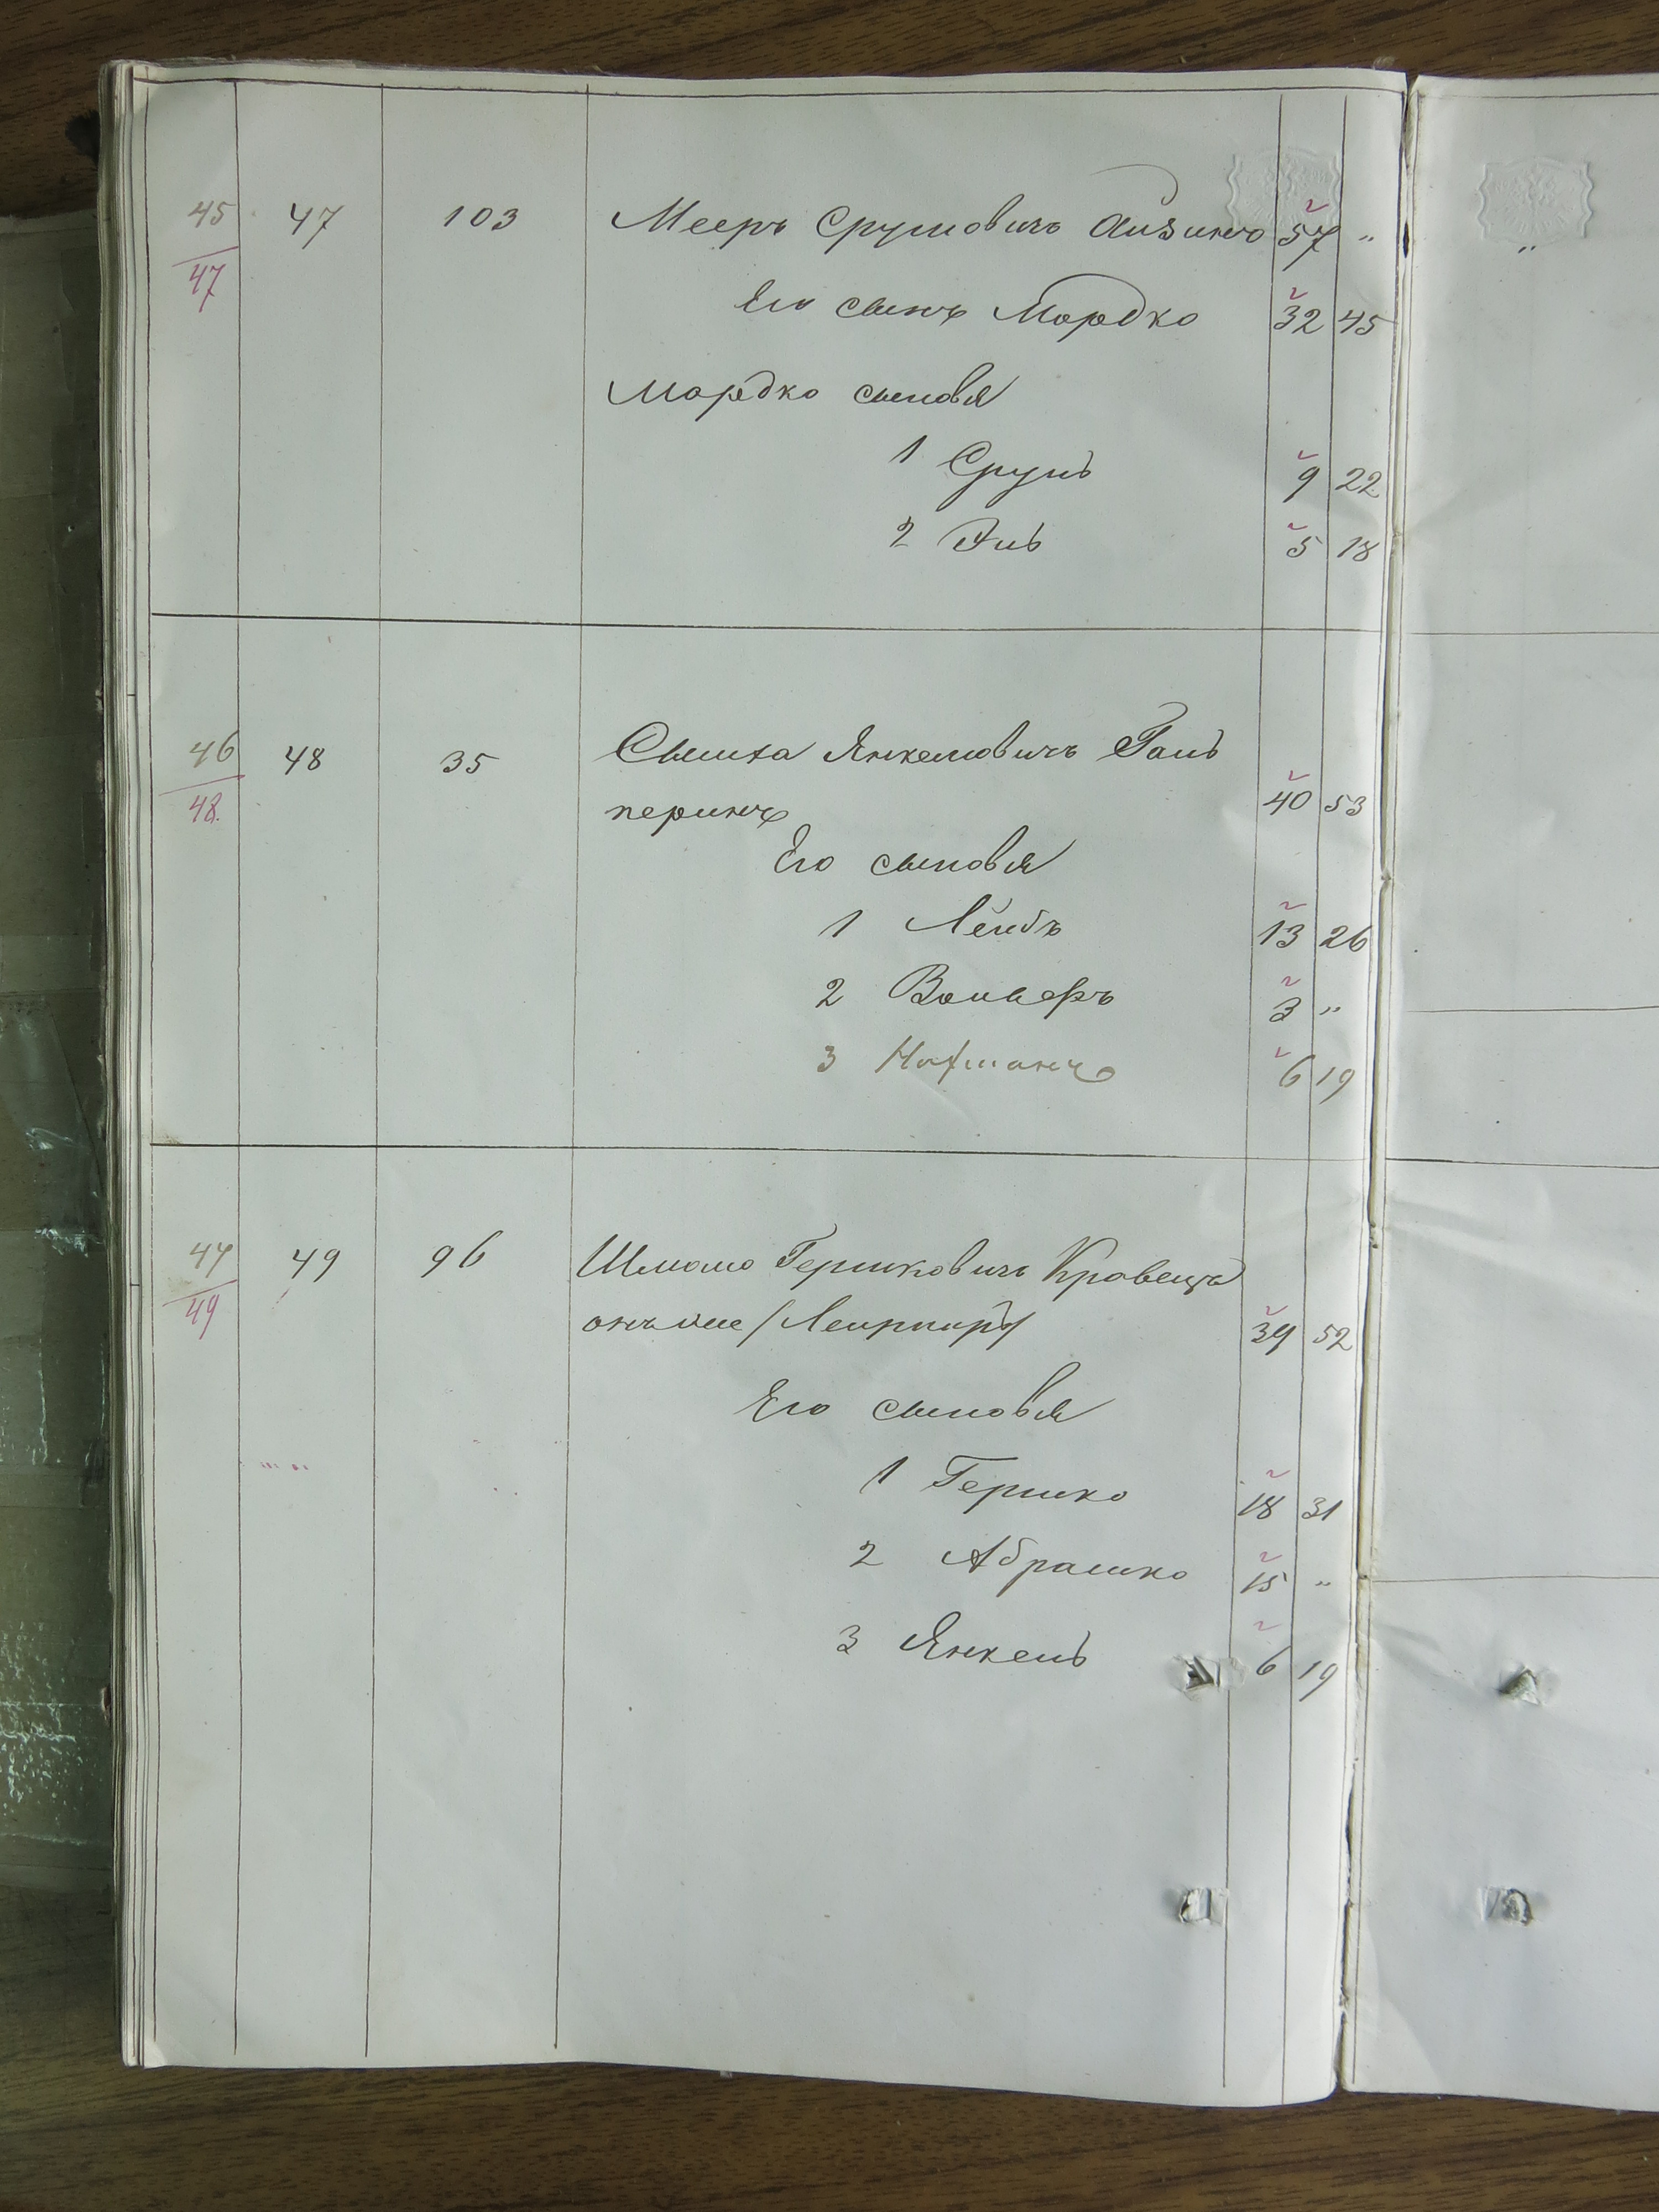 45 47 103 Мееръ Сруловичъ Айзинъ 57 "
47 Его сынъ Мордко 32 45
Мордко сыновья
1 Сруль 9 22
2 Эль 5 18
46 48 35 Сымха Янкелевичъ Галь
48 перинъ 40 53
Его сыновья
1 Лейбъ 13 26
2 Вольфъ 3 "
3 Нафманъ 6 19
47 49 96 Шмыло Гершковичъ Кравецъ
49 онъ же / 39 52
Его сыновья
1 Гершко 18 31
2 Абрашко 15 "
3 Янкель 6 19